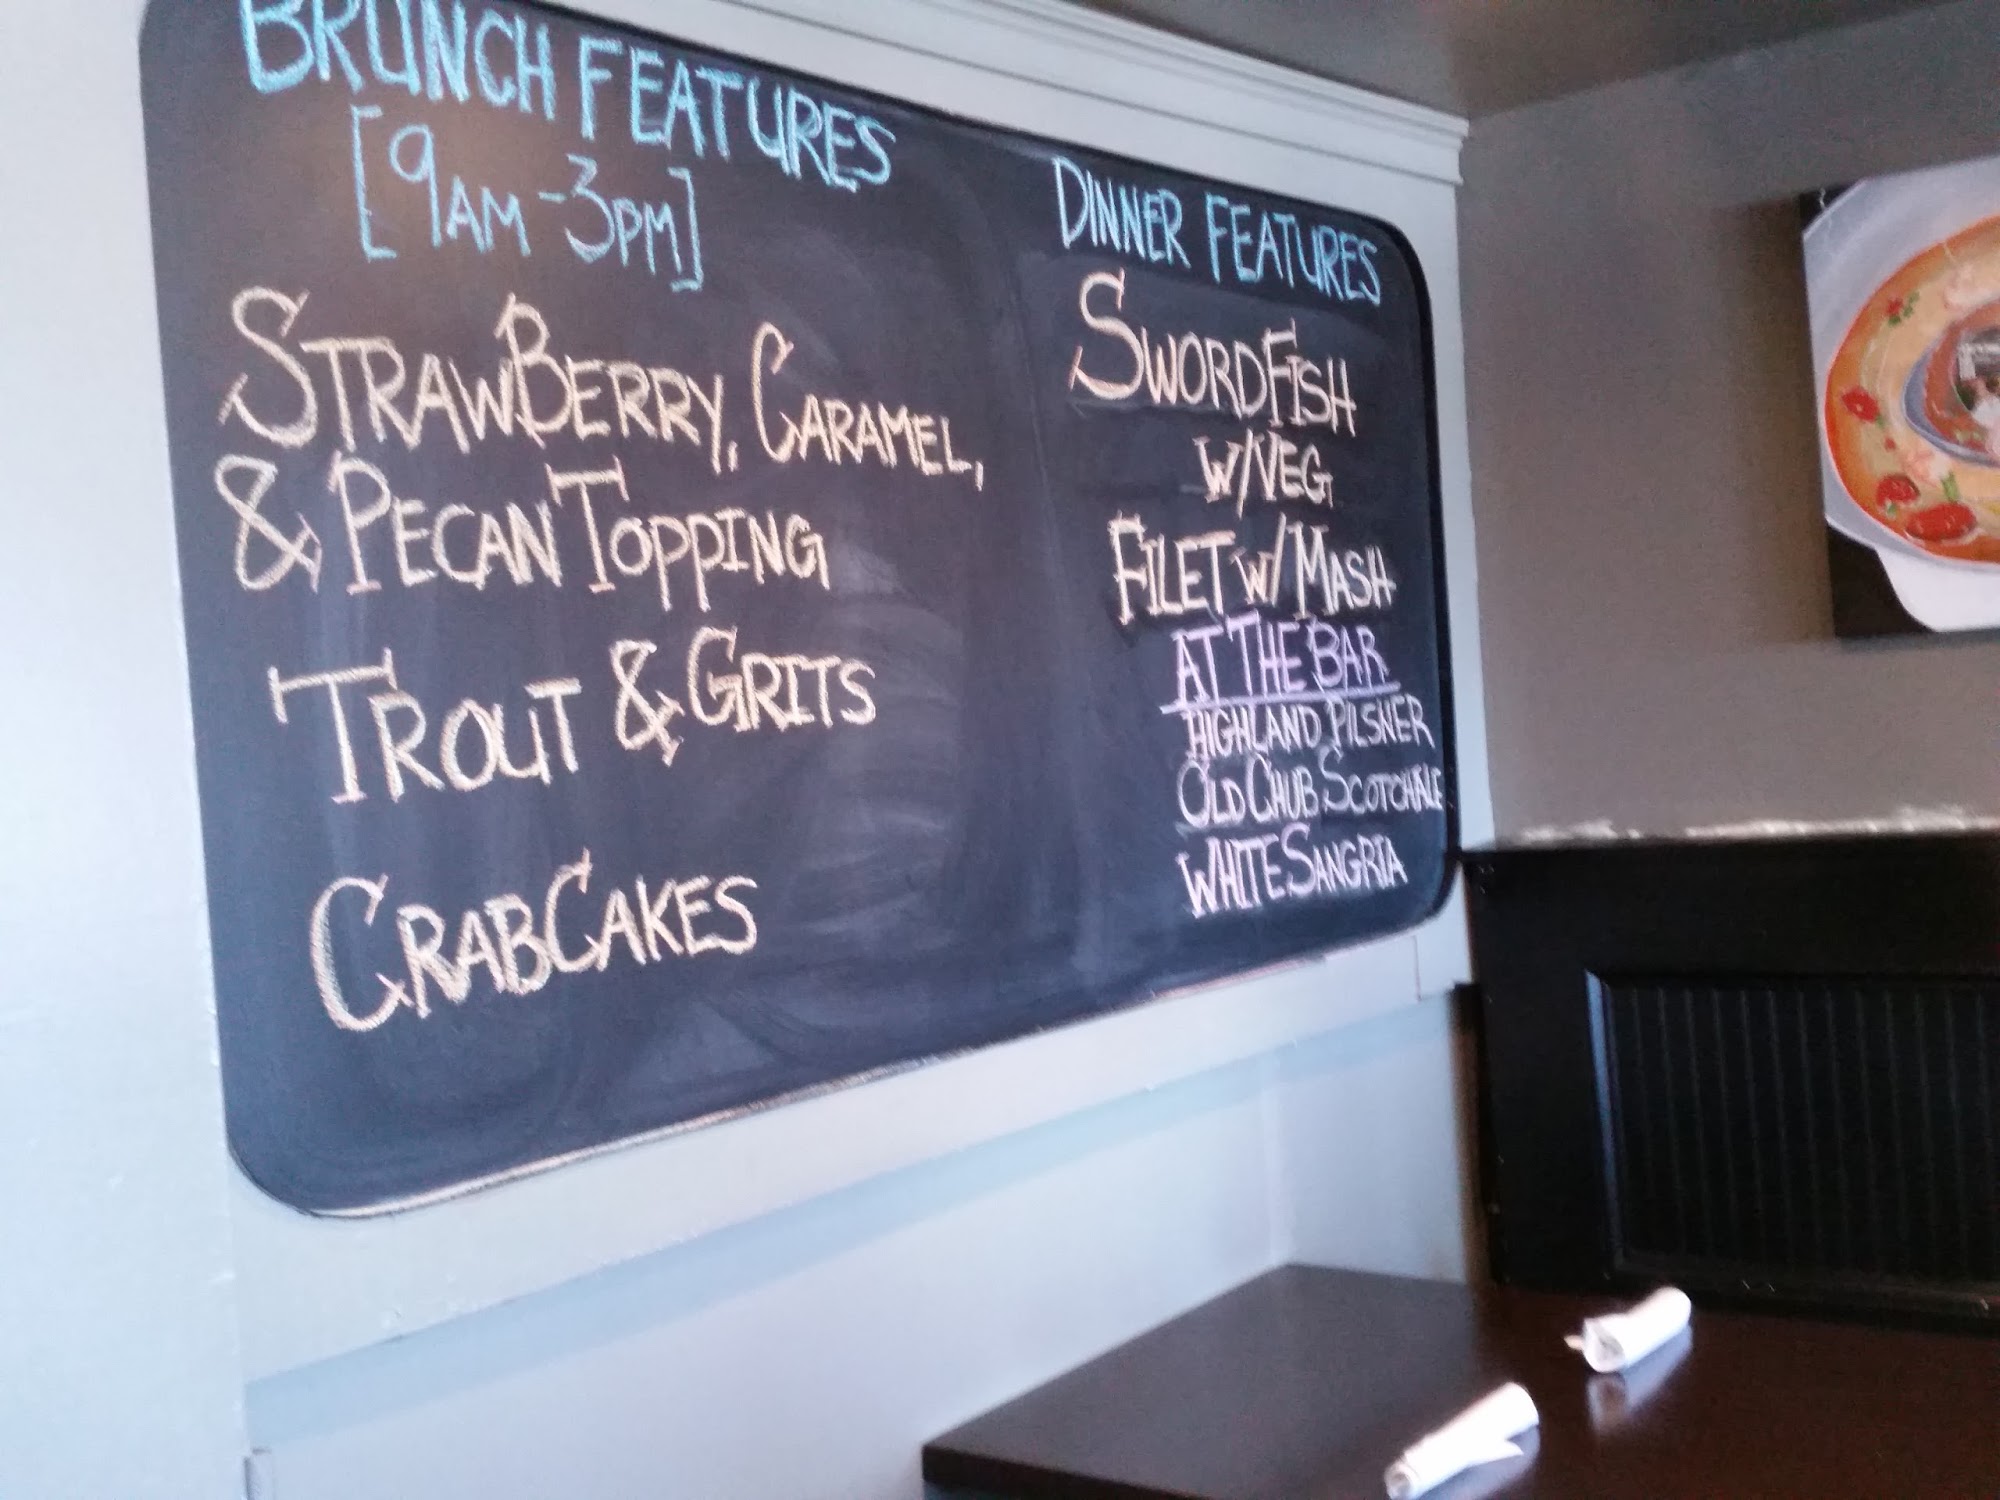 BRUNCH FEATURES
[9AM-3PM]
STRAWBERRY, CARAMEL,
& PECAN TOPPING
TROUT & GRITS
CRABCAKES
DINNER FEATURES
SWORDFISH
W/VEG
FILET W/ MASH
AT THE BAR
HIGHLAND PILSNER
OLD CHUB SCOTCH ALE
WHITE SANGRIA